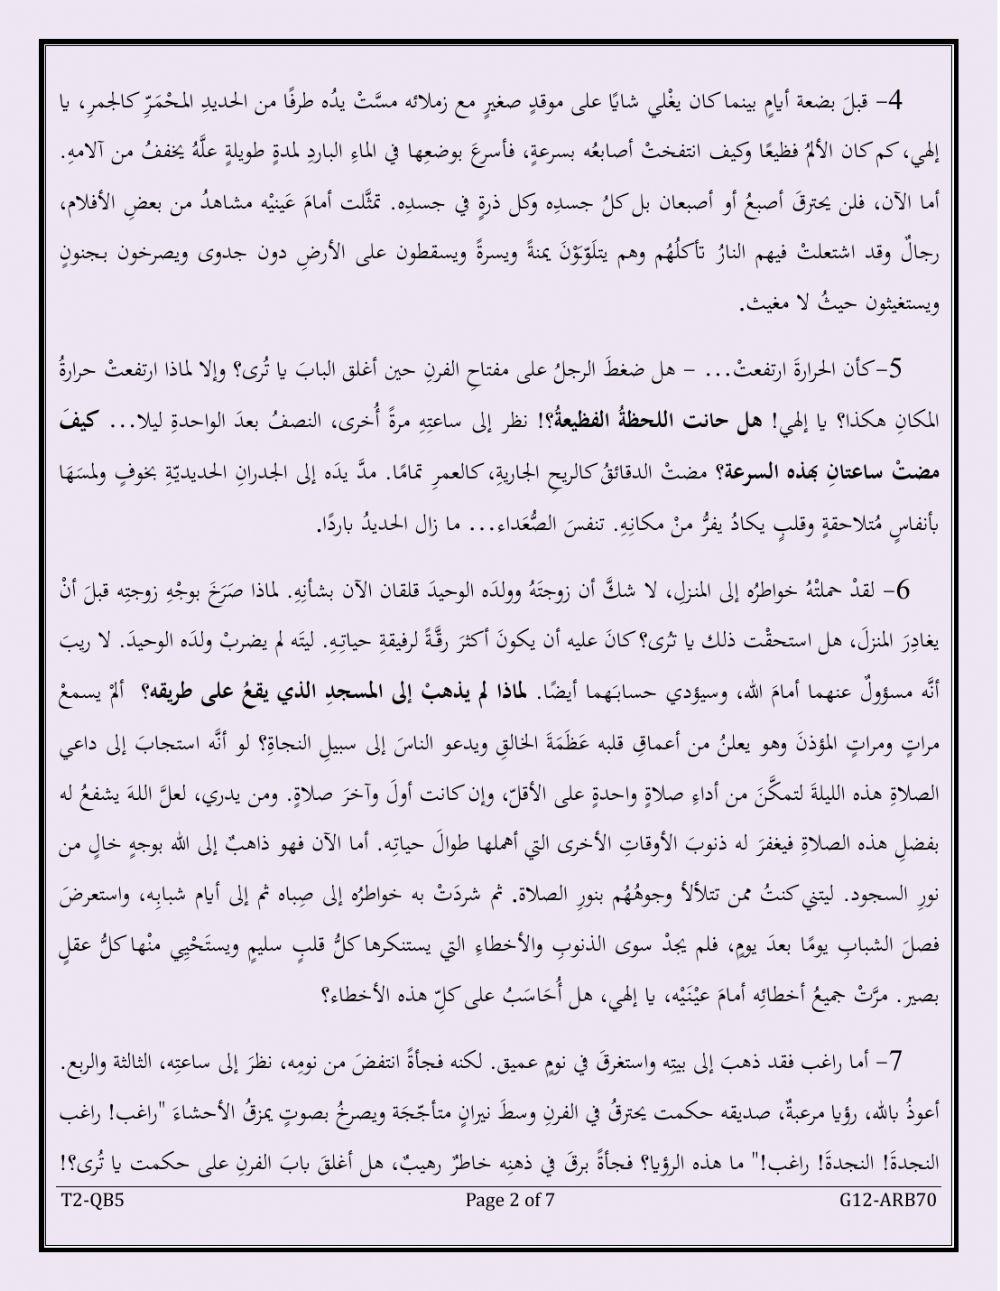 4- قبلَ بضعة أيامٍ بينما كان يغْلي شايًا على موقدٍ صغيرٍ مع زملائه مسَّتْ يدُه طرفًا من الحديدِ المحْمَرِّ كالجمرِ، يا
إلهي، كم كان الألمُ فظيعًا وكيف انتفختْ أصابعُه بسرعةٍ، فأسرعَ بوضعِها في الماءِ الباردِ لمدةٍ طويلةٍ علَّهُ يخففُ من آلامهِ.
أما الآن، فلن يحترقَ أصبعُ أو أصبعان بل كلُ جسدِه وكل ذرةٍ في جسدِه. تمثَّلت أمامَ عَينيْه مشاهدُ من بعضِ الأفلام،
رجالٌ وقد اشتعلتْ فيهم النارُ تأكلُهُم وهم يتلَوّوَنْ يمنةً ويسرةً ويسقطون على الأرضِ دون جدوى ويصرخون بجنونٍ
ويستغيثون حيثُ لا مغيث.
5-كأن الحرارةَ ارتفعتْ... – هل ضغطَ الرجلُ على مفتاحِ الفرنِ حين أغلق البابَ يا تُرى؟ وإلا لماذا ارتفعتْ حرارةُ
المكانِ هكذا؟ يا إلهي! هل حانت اللحظةُ الفظيعةُ؟! نظر إلى ساعتِهِ مرةً أُخرى، النصفُ بعدَ الواحدةِ ليلا... كيفَ
مضتْ ساعتانِ بهذه السرعة؟ مضتْ الدقائقُ كالريحِ الجاريةِ، كالعمرِ تمامًا. مدَّ يدَه إلى الجدرانِ الحديديّةِ بخوفٍ ولمسَهَا
بأنفاسٍ مُتلاحقةٍ وقلبٍ يكادُ يفرُّ منْ مكانِهِ. تنفسَ الصُّعَداء... ما زال الحديدُ باردًا.
6- لقدْ حملتْهُ خواطرُه إلى المنزلِ، لا شكَّ أن زوجتَهُ وولدَه الوحيدَ قلقان الآن بشأنِهِ. لماذا صَرَخَ بوجْهِ زوجتِه قبلَ أنْ
يغادِرَ المنزلَ، هل استحقْت ذلك يا ترُى؟ كانَ عليه أن يكونَ أكثرَ رقَّةً لرفيقةِ حياتِهِ. ليتَه لم يضربْ ولدَه الوحيدَ. لا ريبَ
أنَّه مسؤولٌ عنهما أمامَ الله، وسيؤدي حسابَهما أيضًا. لماذا لم يذهبْ إلى المسجدِ الذي يقعُ على طريقه؟ ألمْ يسمعْ
مراتٍ ومراتٍ المؤذنَ وهو يعلنُ من أعماقِ قلبه عَظَمَةَ الخالقِ ويدعو الناسَ إلى سبيلِ النجاةِ؟ لو أنَّه استجابَ إلى داعي
الصلاةِ هذه الليلةَ لتمكَّنَ من أداءِ صلاةٍ واحدةٍ على الأقلّ، وإن كانت أولَ وآخرَ صلاةٍ. ومن يدري، لعلَّ اللهَ يشفعُ له
بفضلِ هذه الصلاةِ فيغفرَ له ذنوبَ الأوقاتِ الأخرى التي أهملها طوالَ حياتِه. أما الآن فهو ذاهبٌ إلى الله بوجهٍ خالٍ من
نورِ السجود. ليتني كنتُ ممن تتلألأ وجوهُهُم بنورِ الصلاة. ثم شردَتْ به خواطرُه إلى صِباه ثم إلى أيام شبابِه، واستعرضَ
فصلَ الشبابِ يومًا بعدَ يومٍ، فلم يجدْ سوى الذنوبِ والأخطاءِ التي يستنكرها كلُّ قلبٍ سليمٍ ويستَحْيِي منْها كلُّ عقلٍ
بصير. مرَّتْ جميعُ أخطائِه أمامَ عيْنَيْه، يا إلهي، هل أُحَاسَبُ على كلِّ هذه الأخطاء؟
7- أما راغب فقد ذهبَ إلى بيتِه واستغرقَ في نومٍ عميق. لكنه فجأةً انتفضَ من نومِه، نظرَ إلى ساعتِه، الثالثة والربع.
أعوذُ بالله، رؤيا مرعبةٌ، صديقه حكمت يحترقُ في الفرنِ وسطَ نيرانٍ متأجّجَة ويصرخُ بصوتٍ يمزقُ الأحشاءَ "راغب! راغب
النجدةَ! النجدةَ! راغب!" ما هذه الرؤيا؟ فجأةً برقَ في ذهنِه خاطرٌ رهيبٌ، هل أغلقَ بابَ الفرنِ على حكمت يا تُرى؟!
T2-QB5 Page 2 of 7 G12-ARB70